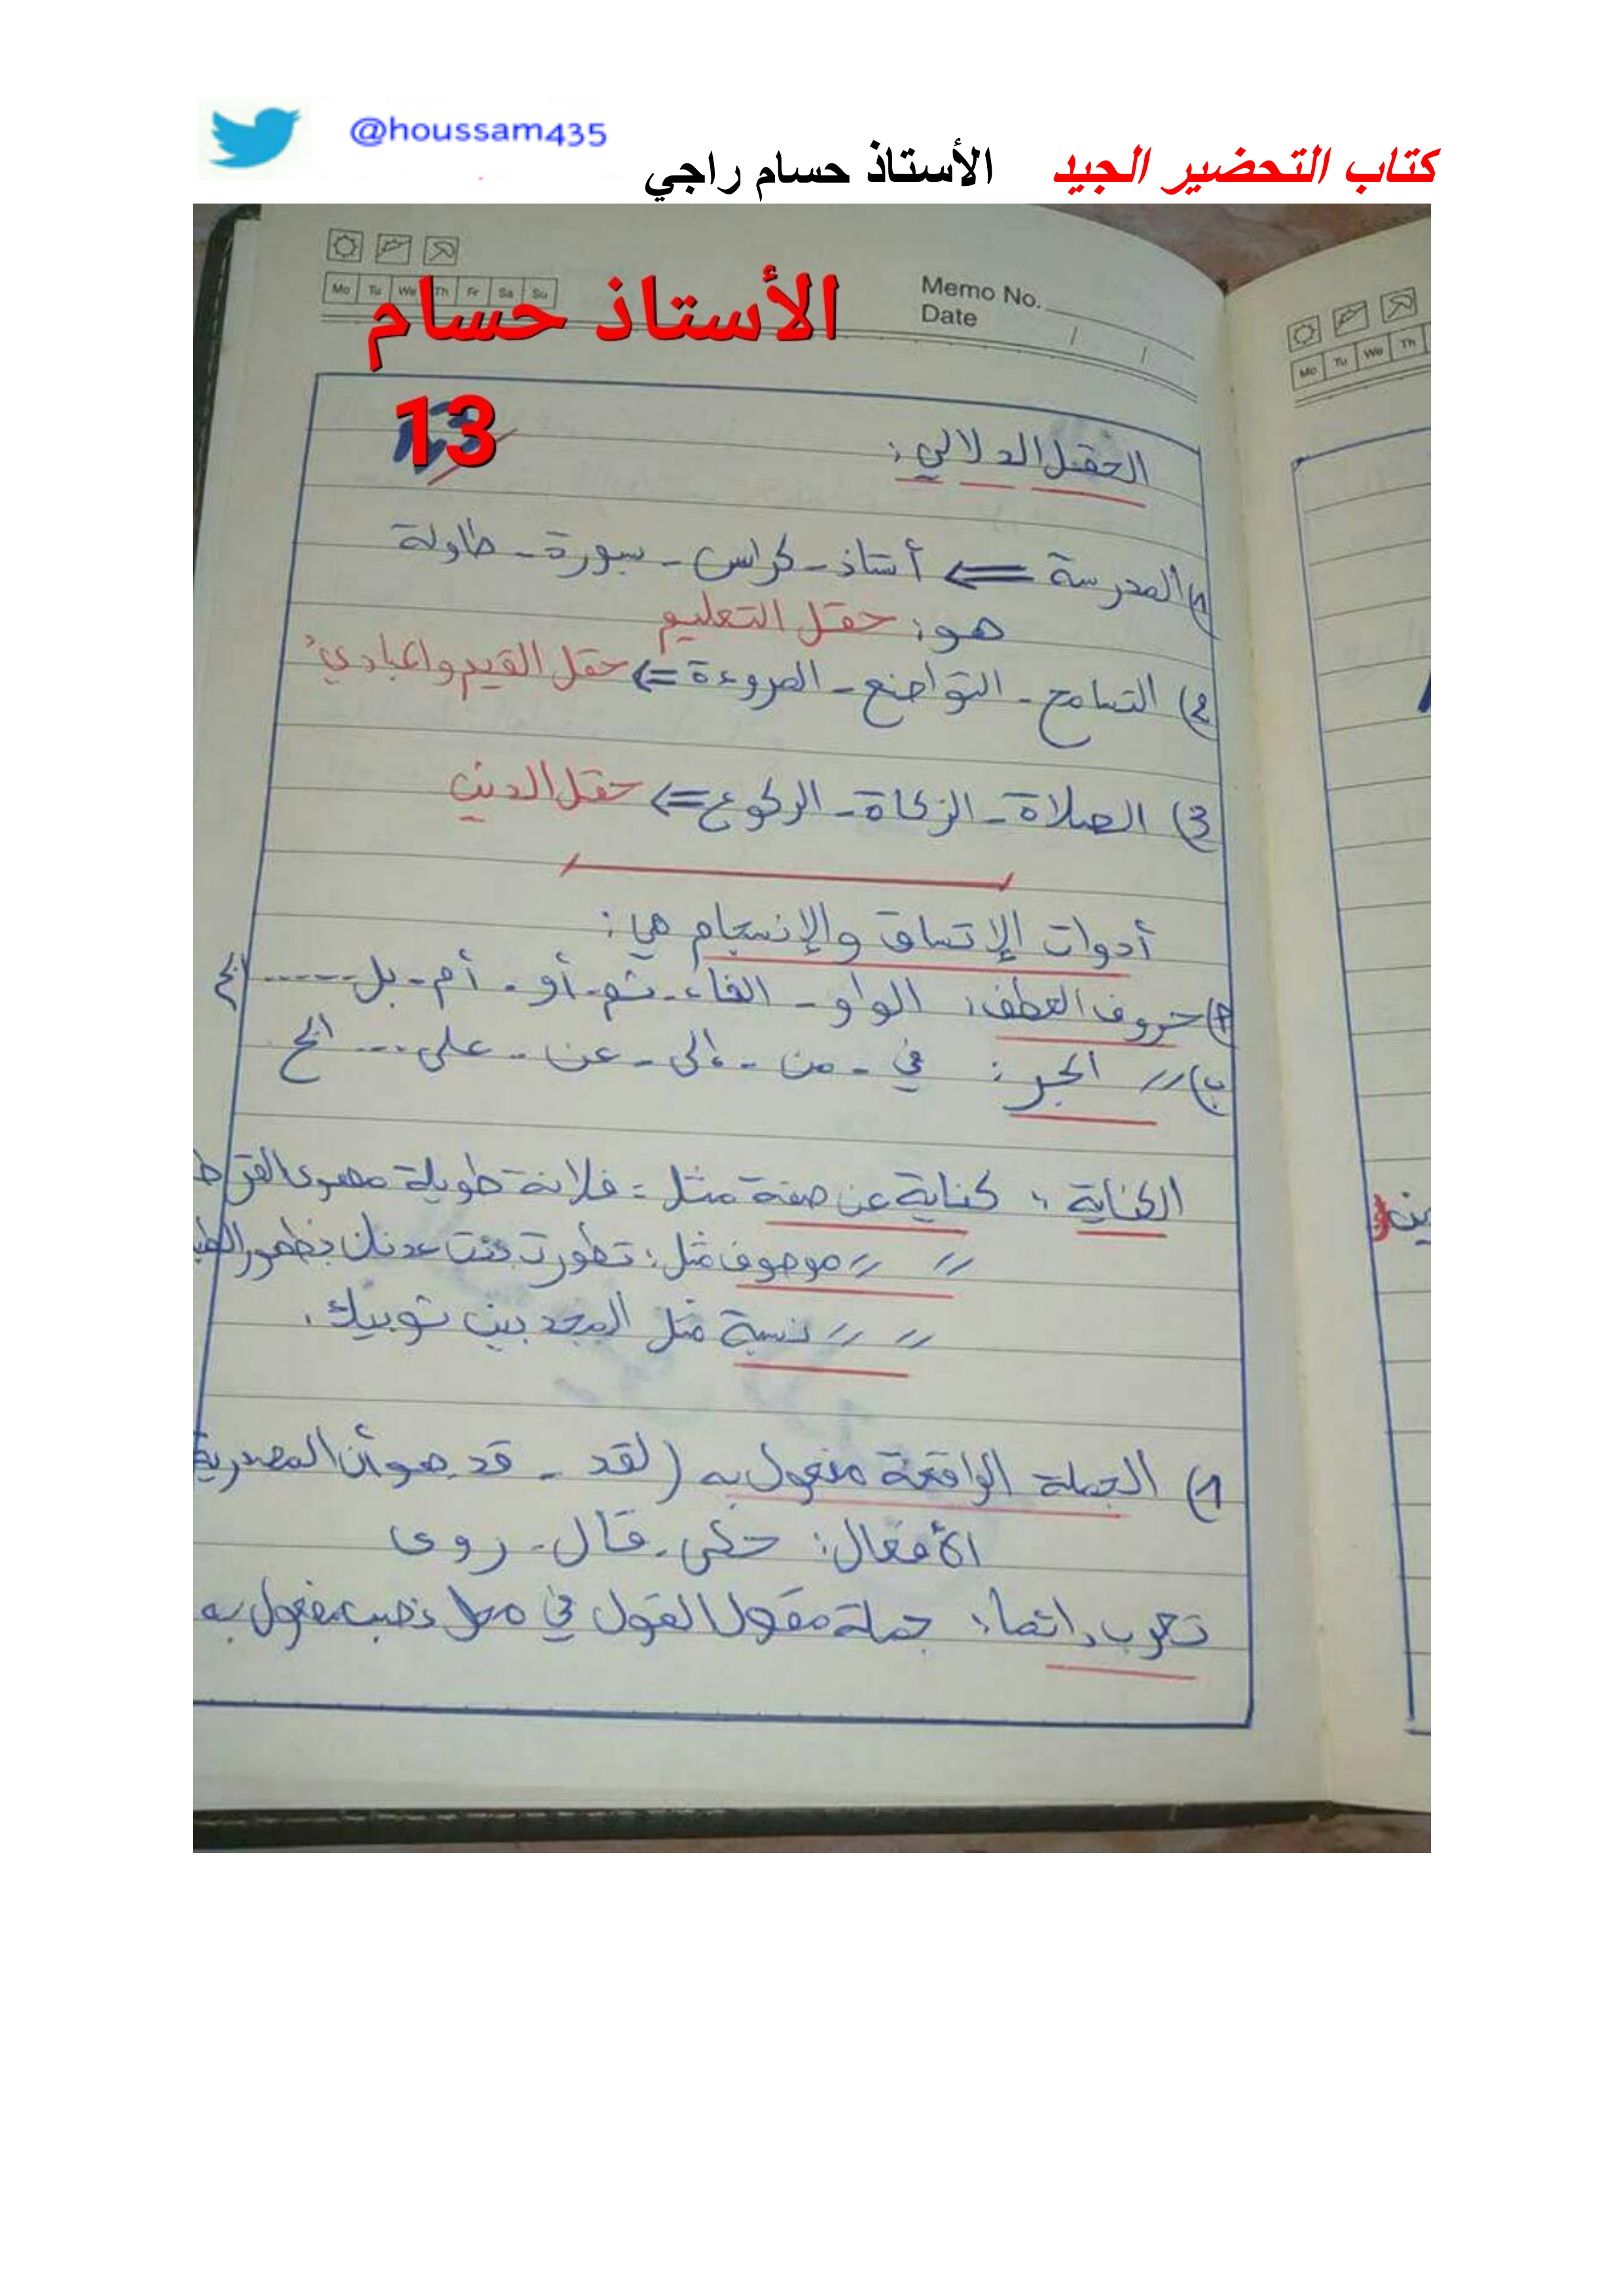 @houssam435
كتاب التحضير الجيد الأستاذ حسام راجي
Memo No.
Date
Mo Tu We Th Fr Sa Su
الأستاذ حسام
13
الحقل الدلالي:
1) المدرسة ⇐ أستاذ - كراس - سبورة - طاولة
هو: حقل التعليم
2) التسامح - التواضع - المروءة ⇐ حقل القيم والمبادئ
3) الصلاة - الزكاة - الركوع ⇐ حقل الدين
أدوات الإتساق والإنسجام هي:
أ) حروف العطف: الواو - الفاء - ثم - أو - أم - بل ...... الخ
ب) // الجر: في - من - إلى - عن - على ... الخ
الكناية: كناية عن صفة مثل: فلانة طويلة مهوى القرط
// // موصوف مثل: تطورت منذ بظهور
// // نسبة مثل المجد بين ثوبيك.
1) الجملة الواقعة مفعول به (لقد - قد - أن المصدرية
الأفعال: حكى - قال - روى
تعرب دائما: جملة مقول القول في محل نصب مفعول به
Mo Tu We Th
ين